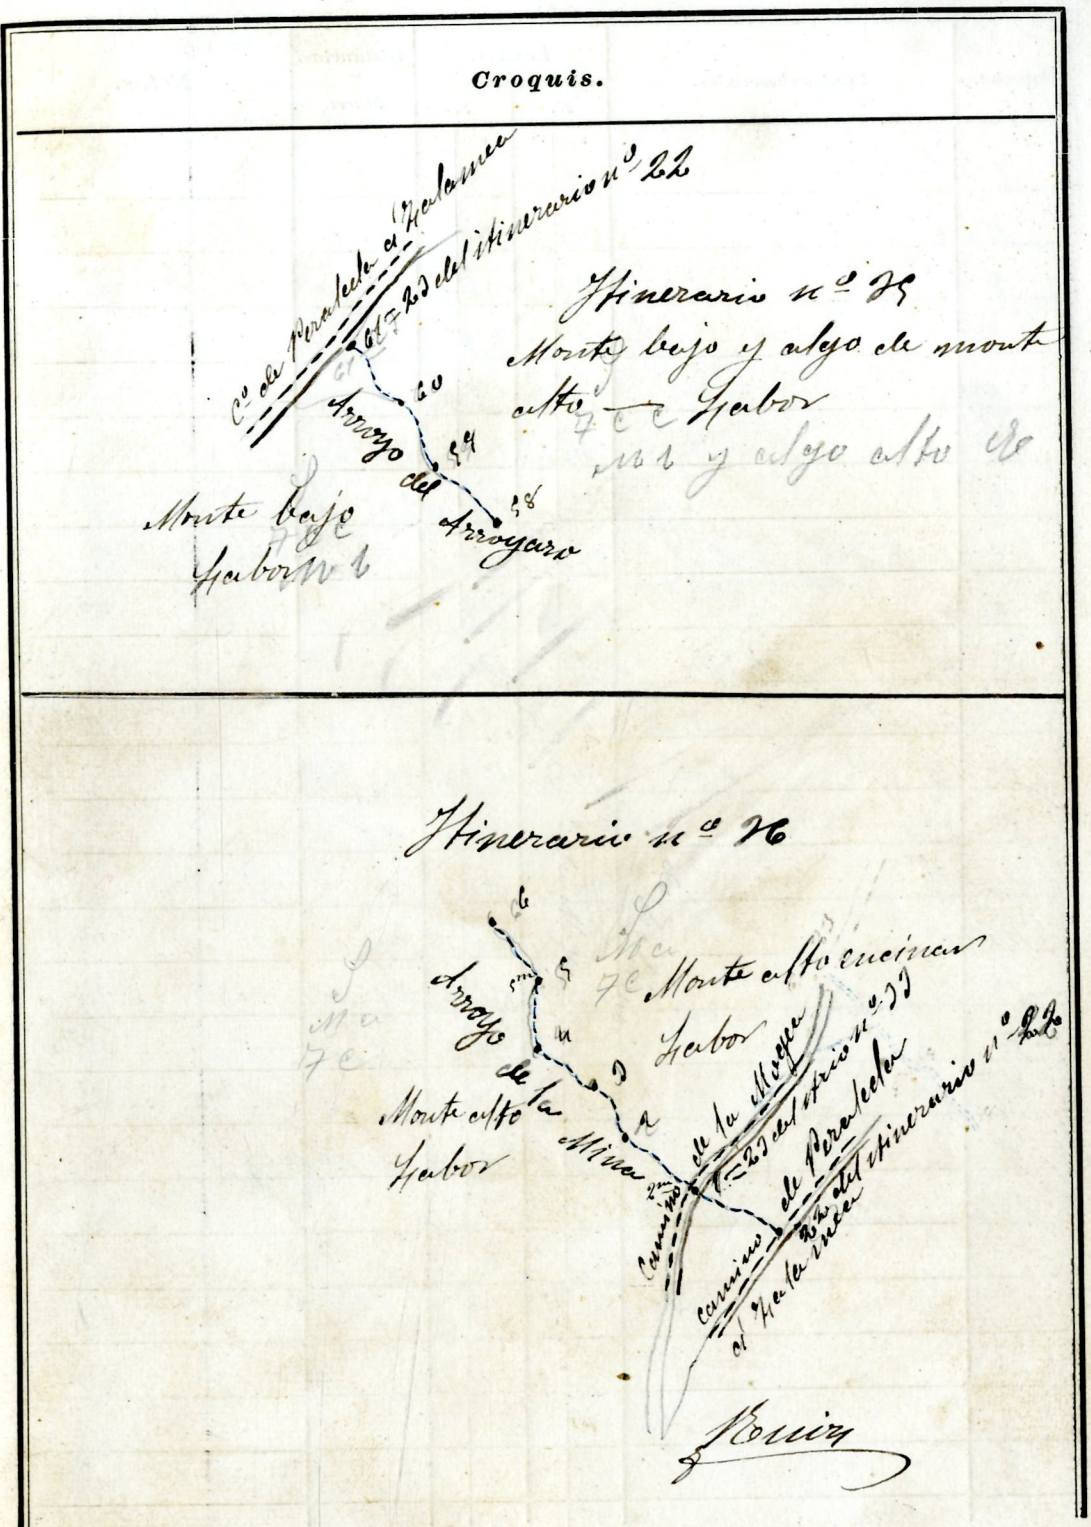 Croquis.
Cº de Peraleda á Zalamea
61 = 23 del itinerario nº 22
Itinerario nº 35
Monte bajo y algo de monte
alto — Labor
61
60
59
58
Arroyo
del
Arroyazo
m b y algo alto
Monte bajo
Labor
m b
Itinerario nº 36
6
5
5m
4
3
2
2m
Arroyo
de la
Mina
Monte alto encinar
Labor
Monte alto
Labor
Camino de la Moyea
1 = 23 del itrio nº 33
camino de Peraleda
á Zalamea
22 del itinerario nº 22